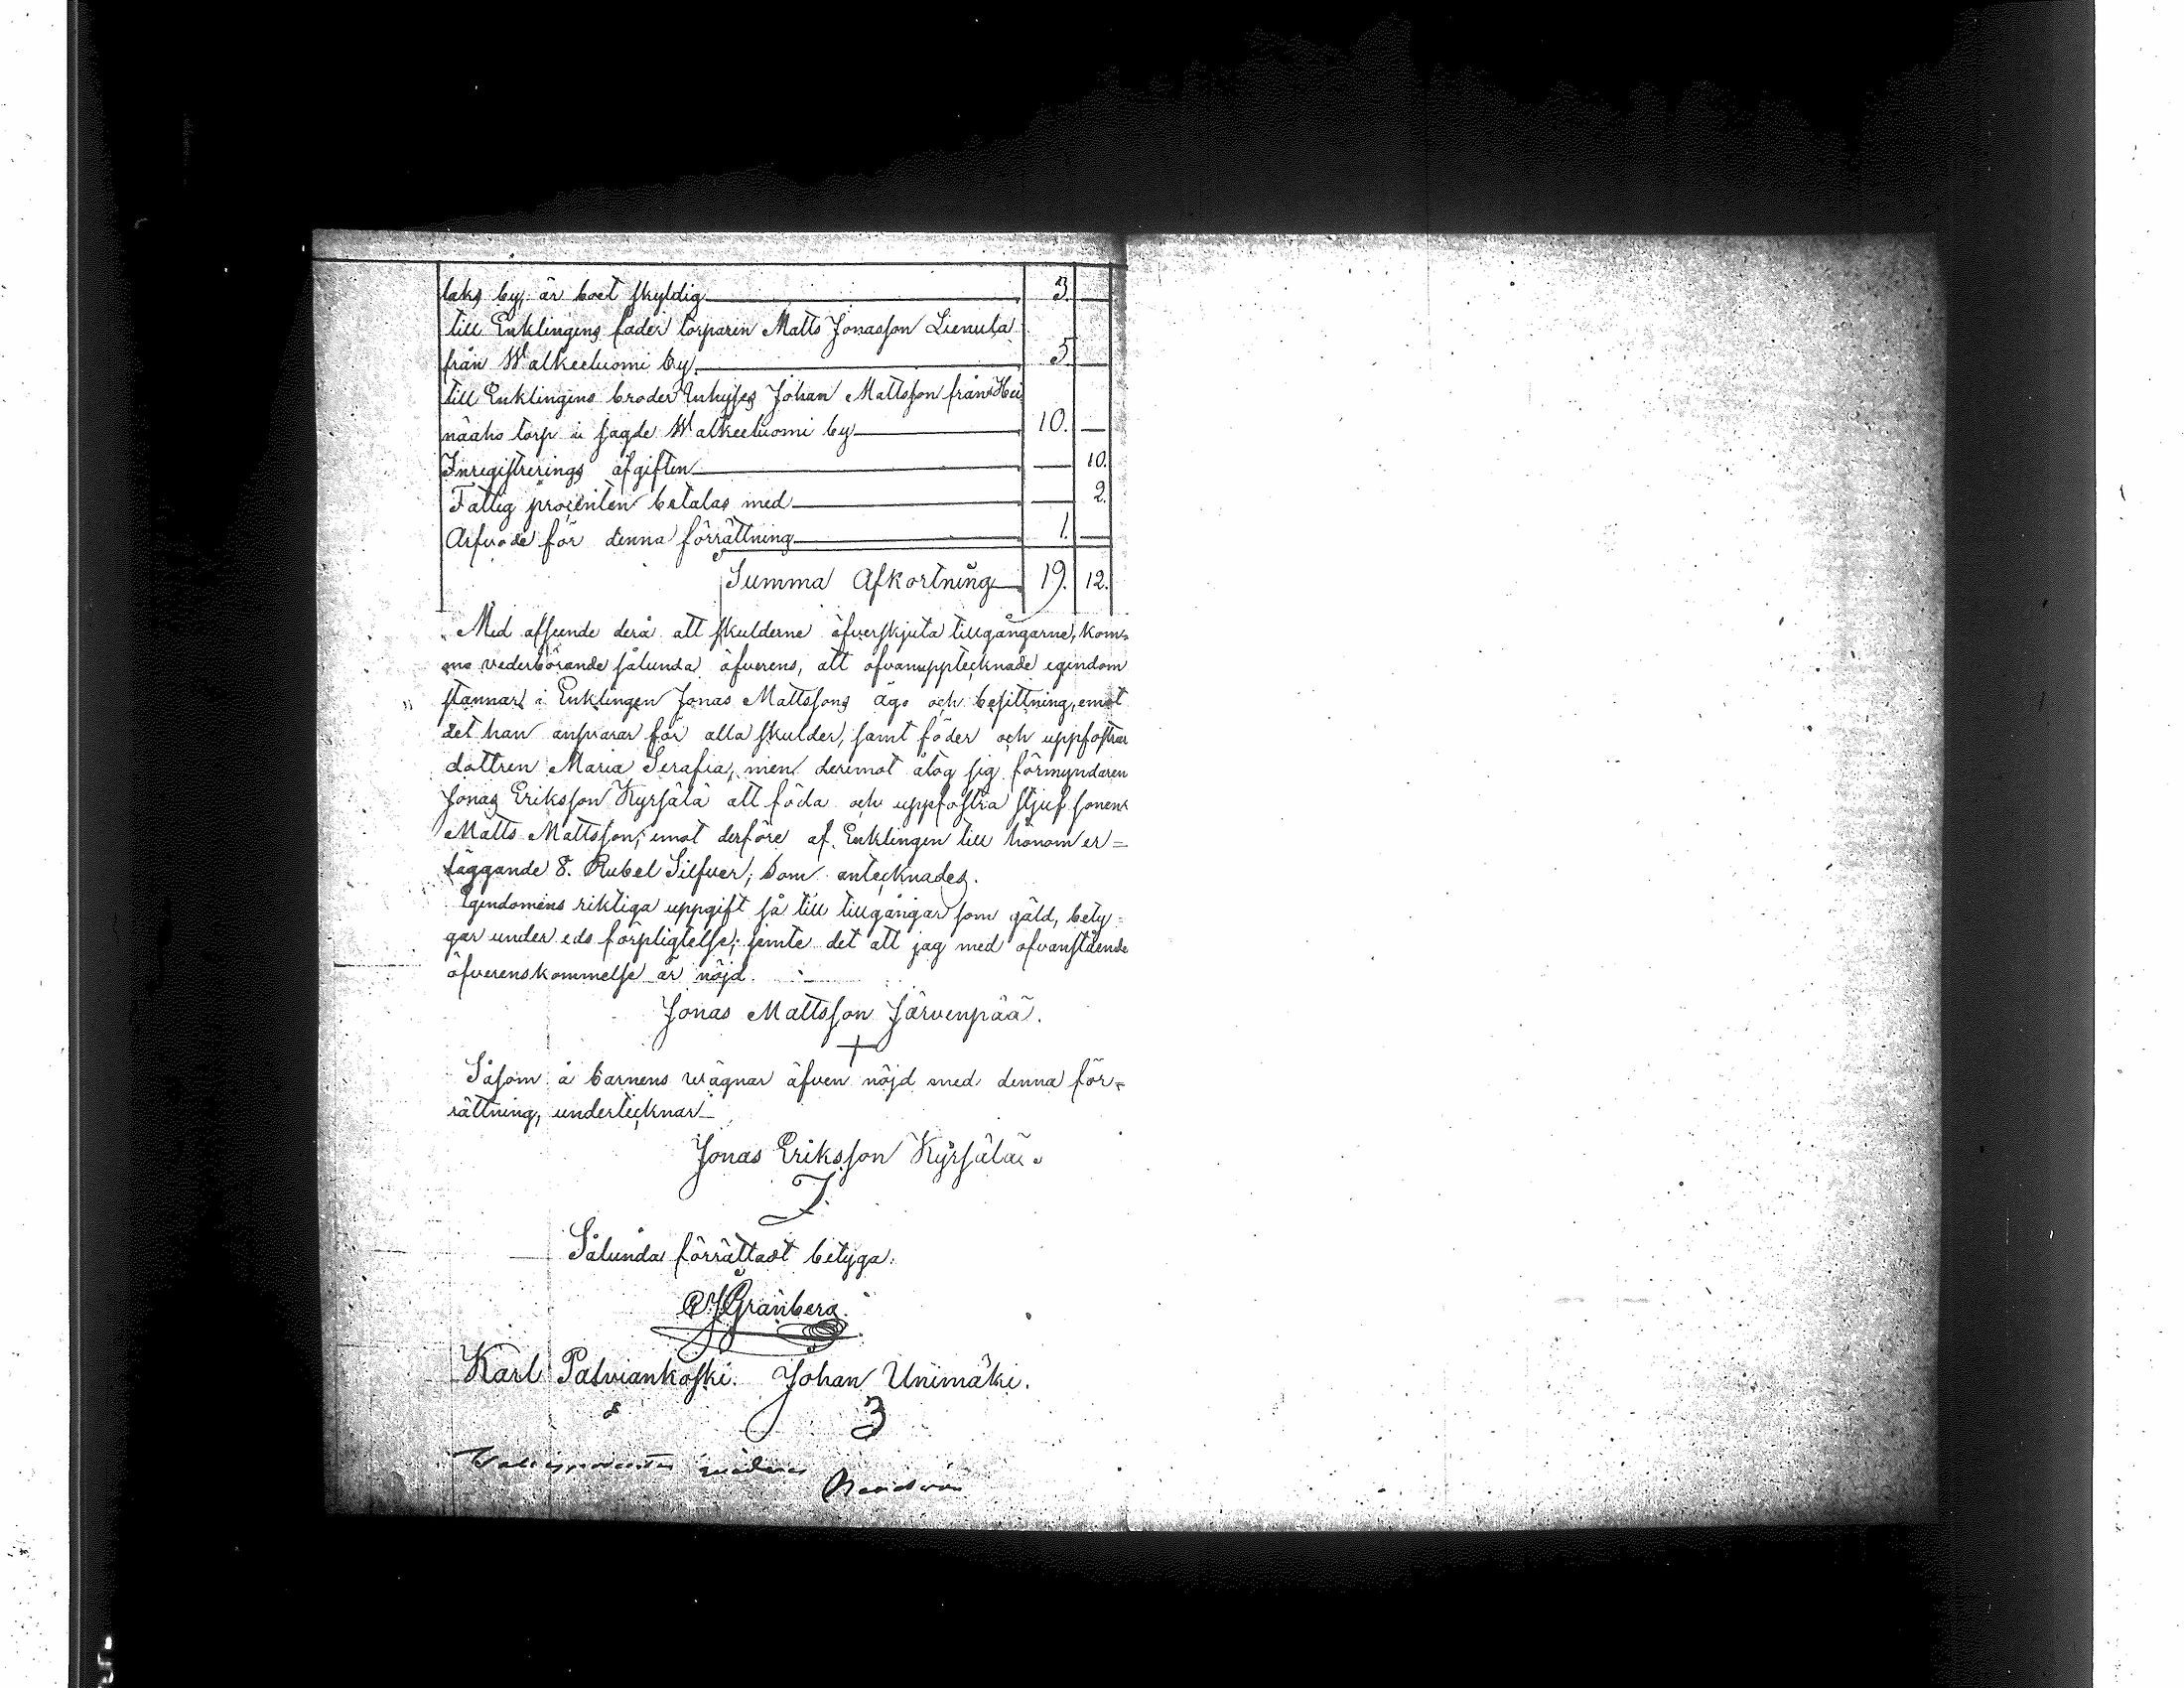 laks by, är boet skyldig 3. —
till Enklingens fader torparen Matts Jonasson Lienula
från Walkeeluomi by 5. —
till Enklingens broder Inhyses Johan Mattsson från Hei
näaho torp i sagde Walkeeluomi by 10. —
Inregistrerings afgiften — 10.
Fattig procenten betalas med — 2.
Arfvode för denna förrättning 1. —
Summa Afkortning 19. 12.
Med afseende derå att skulderne öfverskjuta tillgångarne, kom-
mo vederbörande sålunda öfverens, att ofvanupptecknade egendom
stannar i Enklingen Jonas Mattssons ägo och besittning, emot
det han ansvarar för alla skulder, samt föder och uppfostrar
dottren Maria Serafia, men deremot åtog sig förmyndaren
Jonas Eriksson Kyrsälä att föda och uppfostra stjuf sonen
Matts Mattsson, emot derföre af Enklingen till honom er=
läggande 8. Rubel Silfver; som antecknades.
Egendomens riktiga uppgift så till tillgångar som gäld, bety=
gar under eds förpligtelse; jemte det att jag med ofvanstående
öfverenskommelse är nöjd.
Jonas Mattsson Järvenpää.
Såsom å barnens wägnar äfven nöjd med denna för=
rättning, undertecknar
Jonas Eriksson Kyrsälä.
Sålunda förrättadt betyga:
Granberg.
Karl Palviankoski. Johan Unimäki.
3